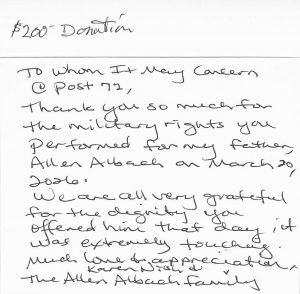 $200- Donation
To Whom It May Concern
@ Post 72,
Thank you so much for
the military rights you
performed for my father,
Allen Albach on March 20,
2026.
We are all very grateful
for the dignity you
offered him that day, it
was extremely touching.
Much love & appreciation,
Karen
The Allen Albach family